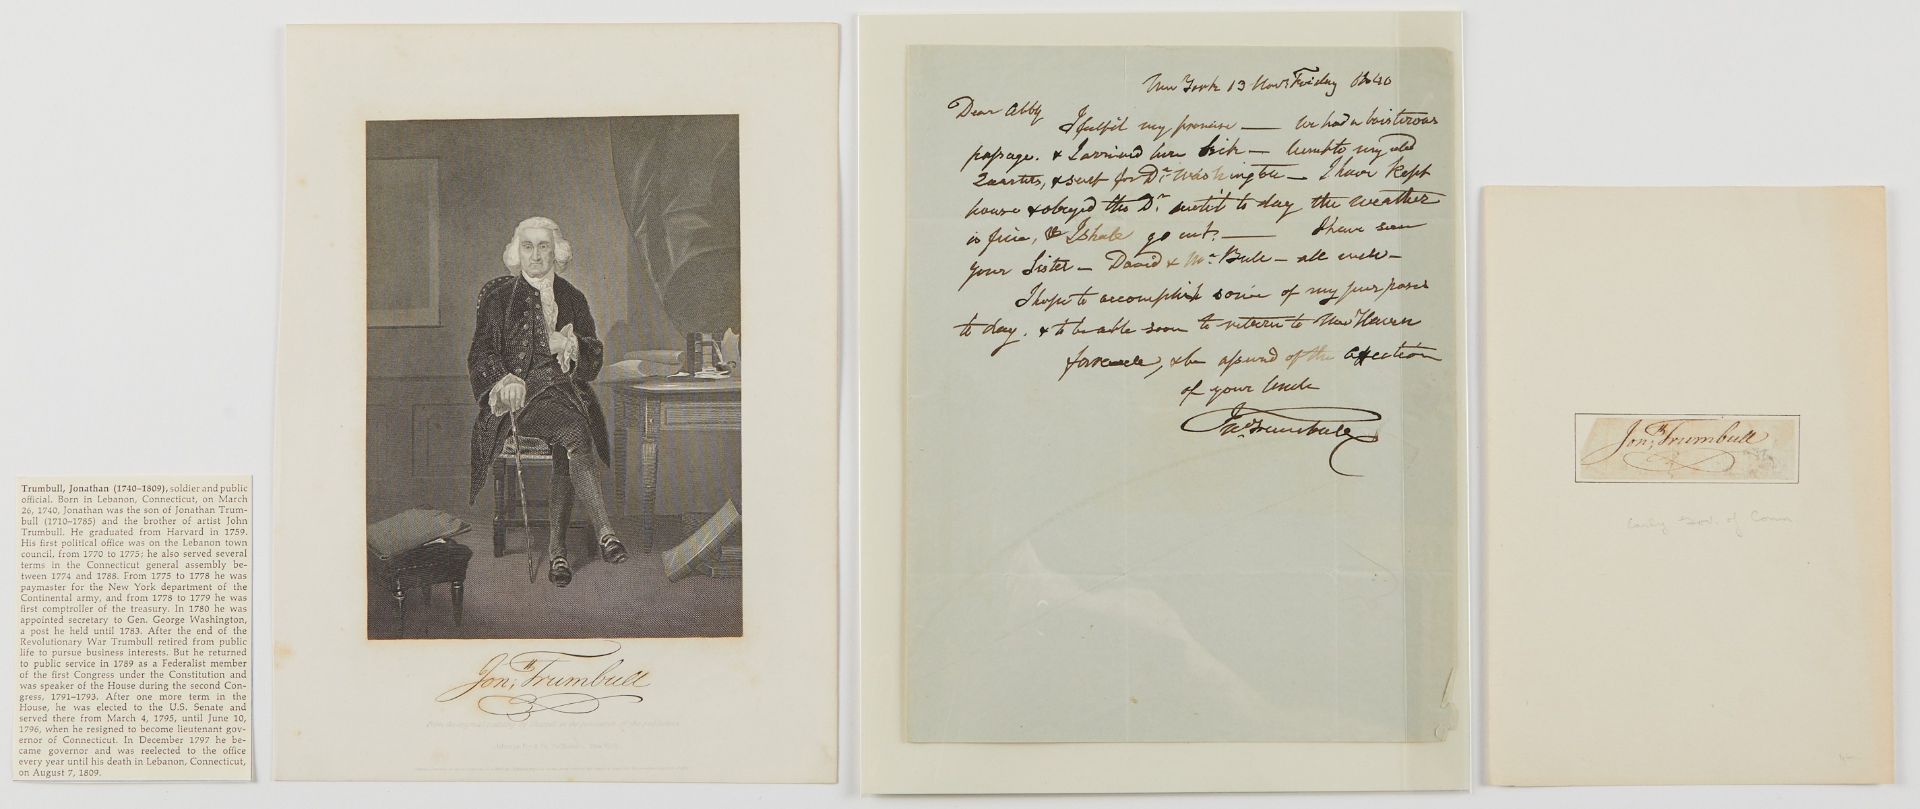 Trumbull, Jonathan (1740–1809), soldier and public
official. Born in Lebanon, Connecticut, on March
26, 1740, Jonathan was the son of Jonathan Trum-
bull (1710–1785) and the brother of artist John
Trumbull. He graduated from Harvard in 1759.
His first political office was on the Lebanon town
council, from 1770 to 1775; he also served several
terms in the Connecticut general assembly be-
tween 1774 and 1788. From 1775 to 1778 he was
paymaster for the New York department of the
Continental army, and from 1778 to 1779 he was
first comptroller of the treasury. In 1780 he was
appointed secretary to Gen. George Washington,
a post he held until 1783. After the end of the
Revolutionary War Trumbull retired from public
life to pursue business interests. But he returned
to public service in 1789 as a Federalist member
of the first Congress under the Constitution and
was speaker of the House during the second Con-
gress, 1791–1793. After one more term in the
House, he was elected to the U.S. Senate and
served there from March 4, 1795, until June 10,
1796, when he resigned to become lieutenant gov-
ernor of Connecticut. In December 1797 he be-
came governor and was reelected to the office
every year until his death in Lebanon, Connecticut,
on August 7, 1809.
Jonth Trumbull
New York 13 Novr Friday 1840
Dear Abby
I fulfil my promise — We had a boisterous
passage. & I arrived here sick — went to my old
Quarters, & sent for Dr Washington — I have kept
house & obeyed the Dr until to day the weather
is fine, & I shall go out. — I have seen
your Sister — David & Mr Bull — all well —
I hope to accomplish some of my purposes
to day. & to be able soon to return to New Haven
farewell, & be assured of the affection
of your Uncle
Jno Trumbull
Jonth Trumbull
Early Gov. of Conn